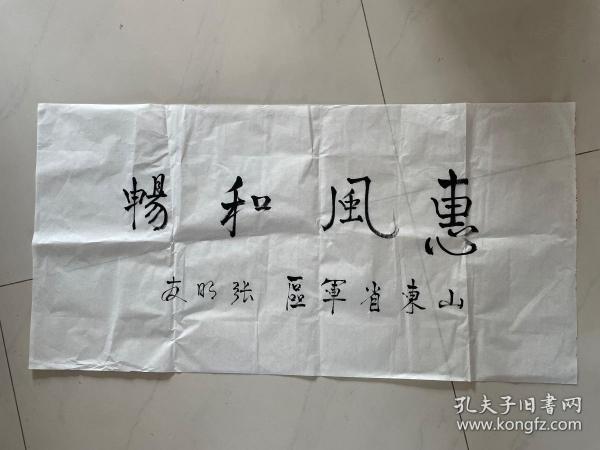 惠風和暢
山東省軍區 张明友
孔夫子旧書网
www.kongfz.com